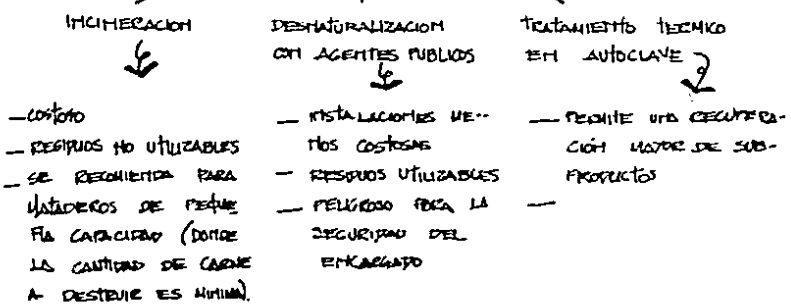 INCINERACION
- COSTOSO
- RESIDUOS NO UTILIZABLES
- SE RECOMIENDA PARA
MATADEROS DE PEQUE
ÑA CAPACIDAD (DONDE
LA CANTIDAD DE CARNE
A DESTRUIR ES MINIMA).
DESNATURALIZACION
CON AGENTES PUBLICOS
- INSTALACIONES ME--
NOS COSTOSAS
- RESIDUOS UTILIZABLES
- PELIGROSO PARA LA
SEGURIDAD DEL
ENCARGADO
TRATAMIENTO TERMICO
EN AUTOCLAVE
- PERMITE UNA RECUPERA-
CIÓN MAYOR DE SUB-
PRODUCTOS
-